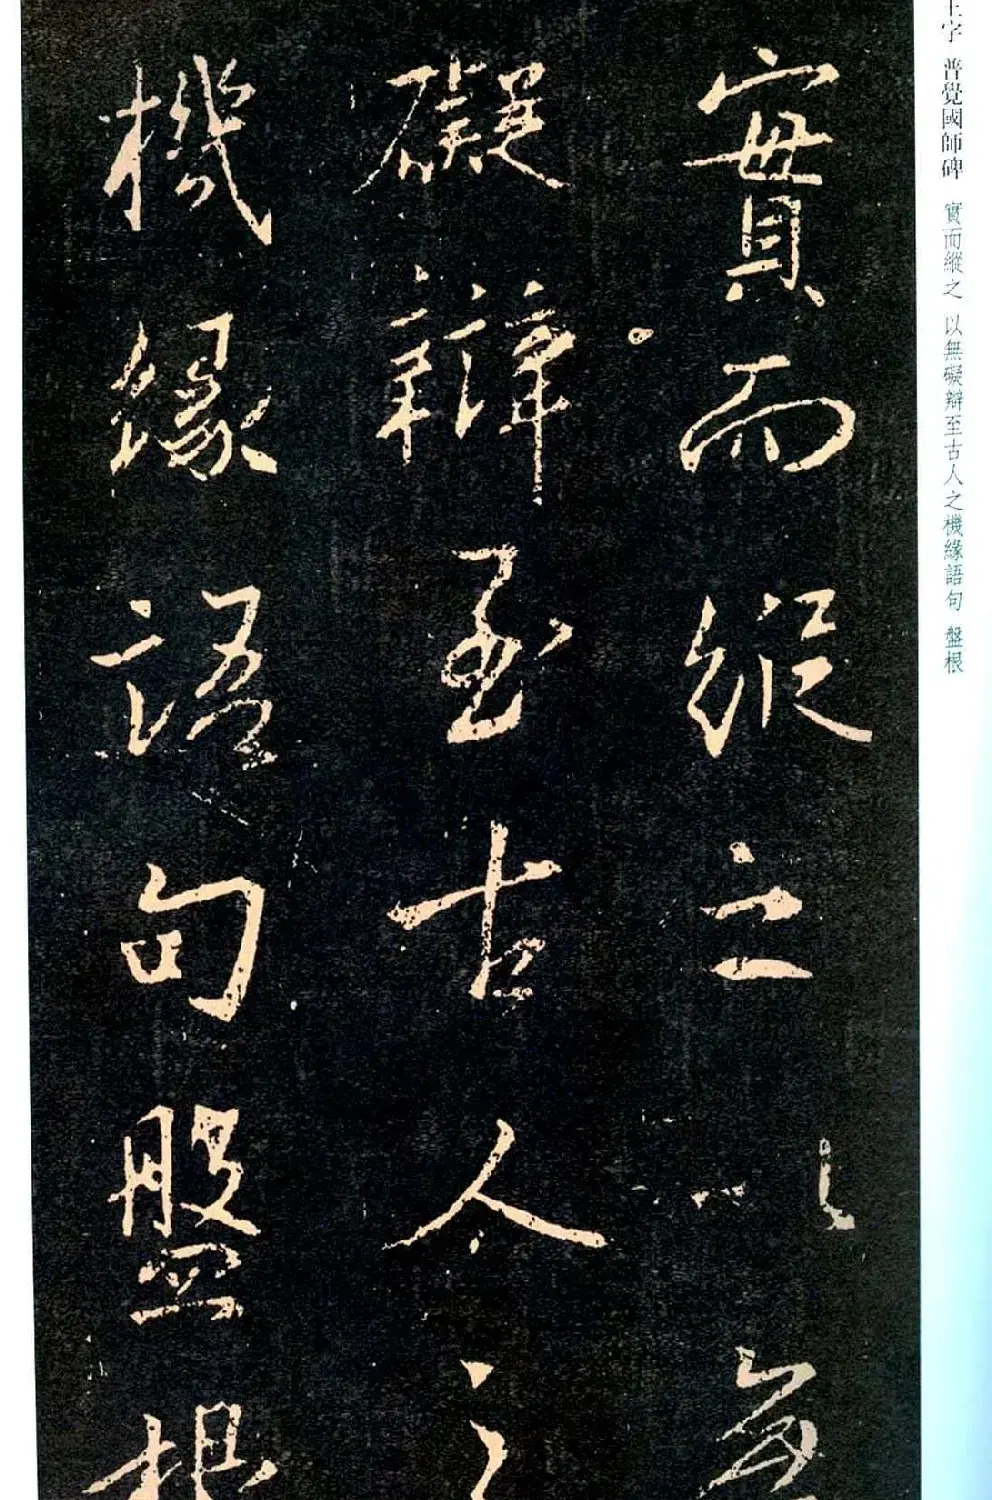 實而縱之以無
礙辯至古人之
機緣語句盤根
王字 普覺國師碑 實而縱之 以無礙辯至古人之機緣語句 盤根